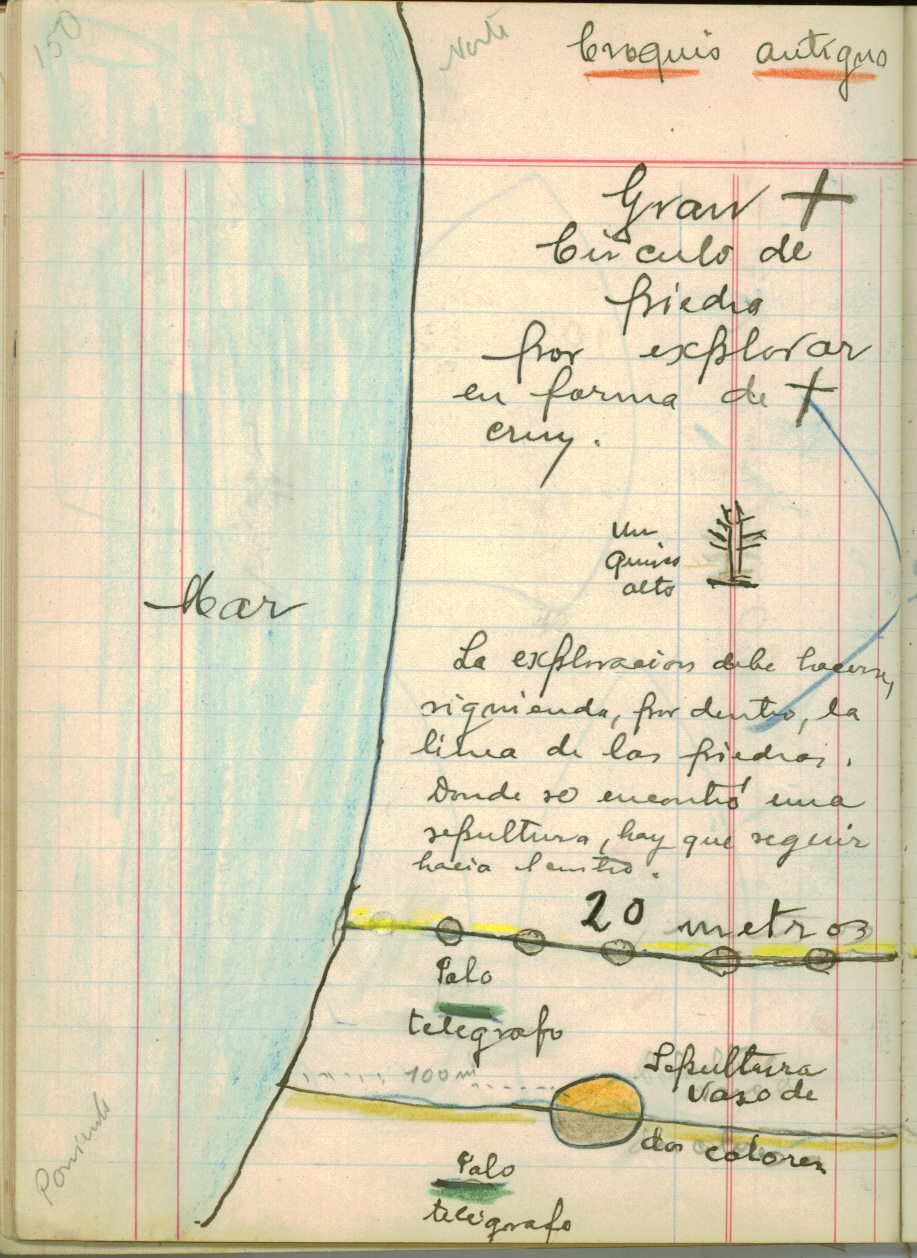 150
Norte
Croquis antiguo
Gran +
Círculo de
piedra
por explorar
en forma de +
cruz.
un
quisco
alto
Mar
La exploracion debe hacerse,
siguiendo, por dentro, la
línea de las piedras.
Donde se encontró una
sepultura, hay que seguir
hacia el centro.
20 metros
Palo
telegrafo
100 m
Sepultura
vaso de
dos colores
Palo
telégrafo
Poniente